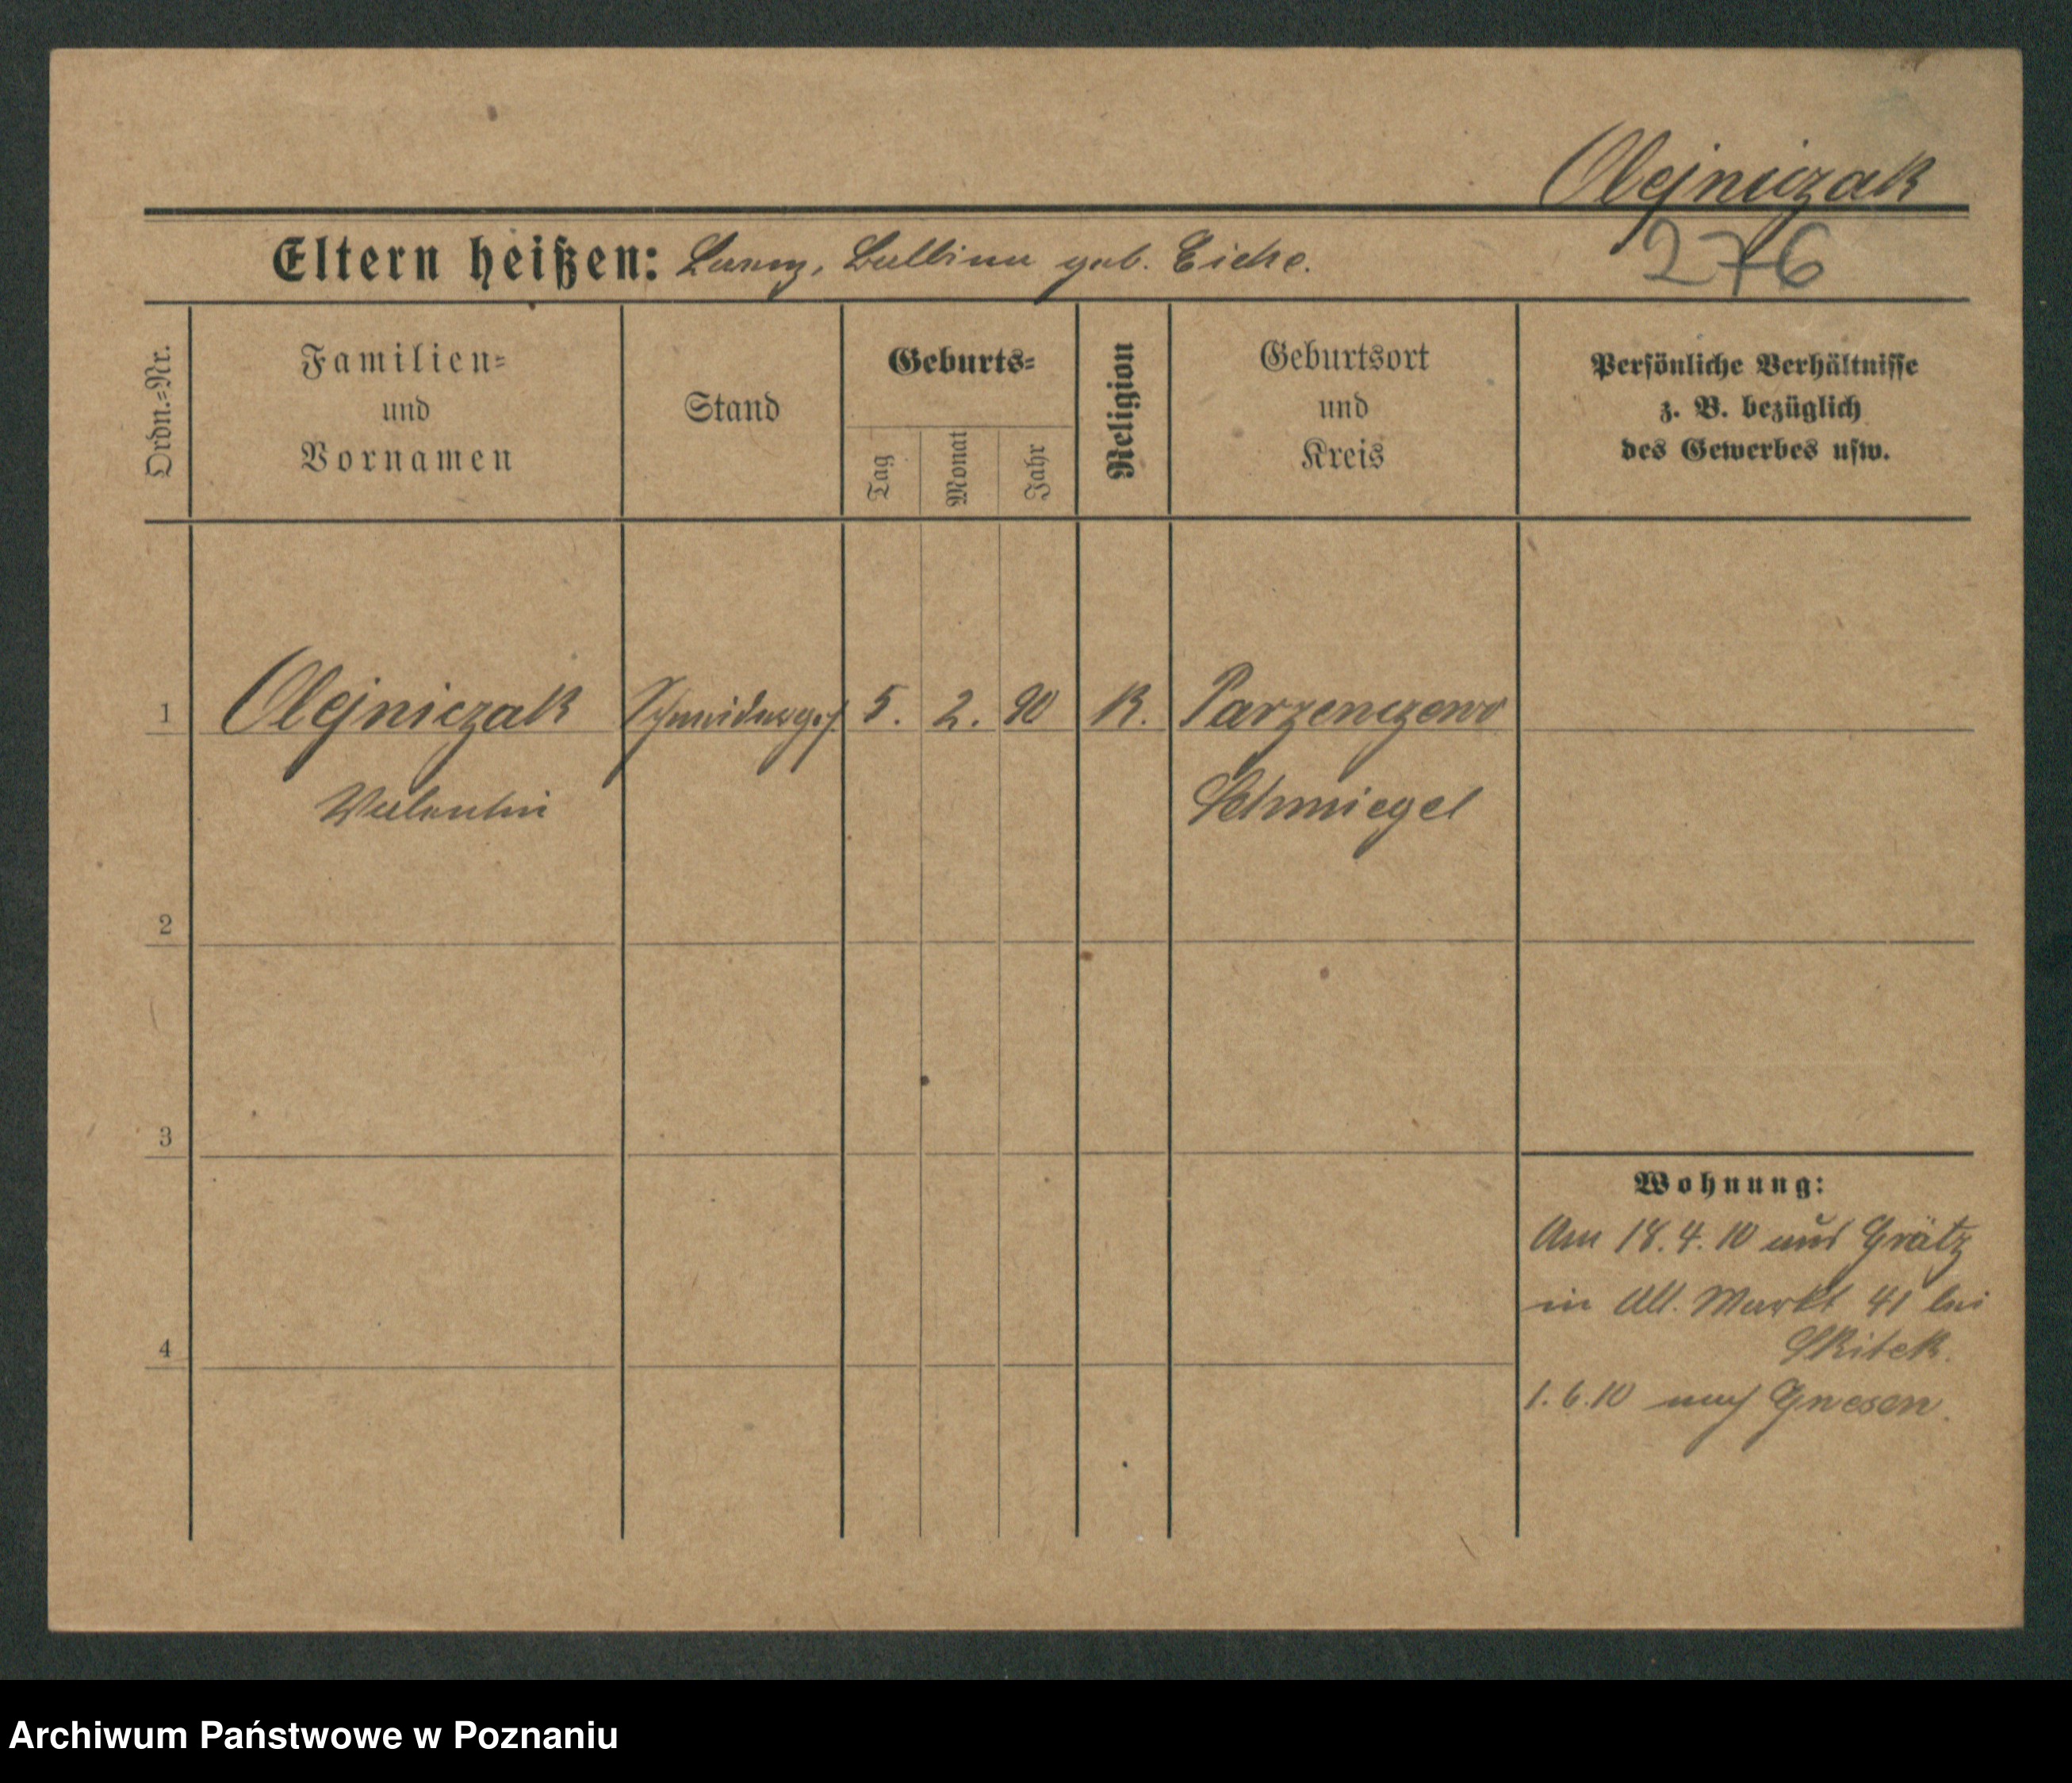 Olejniczak
276
Eltern heißen: Lorenz, Balbina geb. Eicke.
Ordn.=Nr.
Familien=
und
Vornamen
Stand
Geburts=
Tag
Monat
Jahr
Religion
Geburtsort
und
Kreis
Persönliche Verhältnisse
z. B. bezüglich
des Gewerbes usw.
1 Olejniczak Schneiderges. 5. 2. 90 K. Parzenczewo
Valentin Schmiegel
2
3
Wohnung:
Am 18.4.10 aus Grätz
in Alt. Markt 41 bei
Skitek.
4
1.6.10 nach Gnesen.
Archiwum Państwowe w Poznaniu